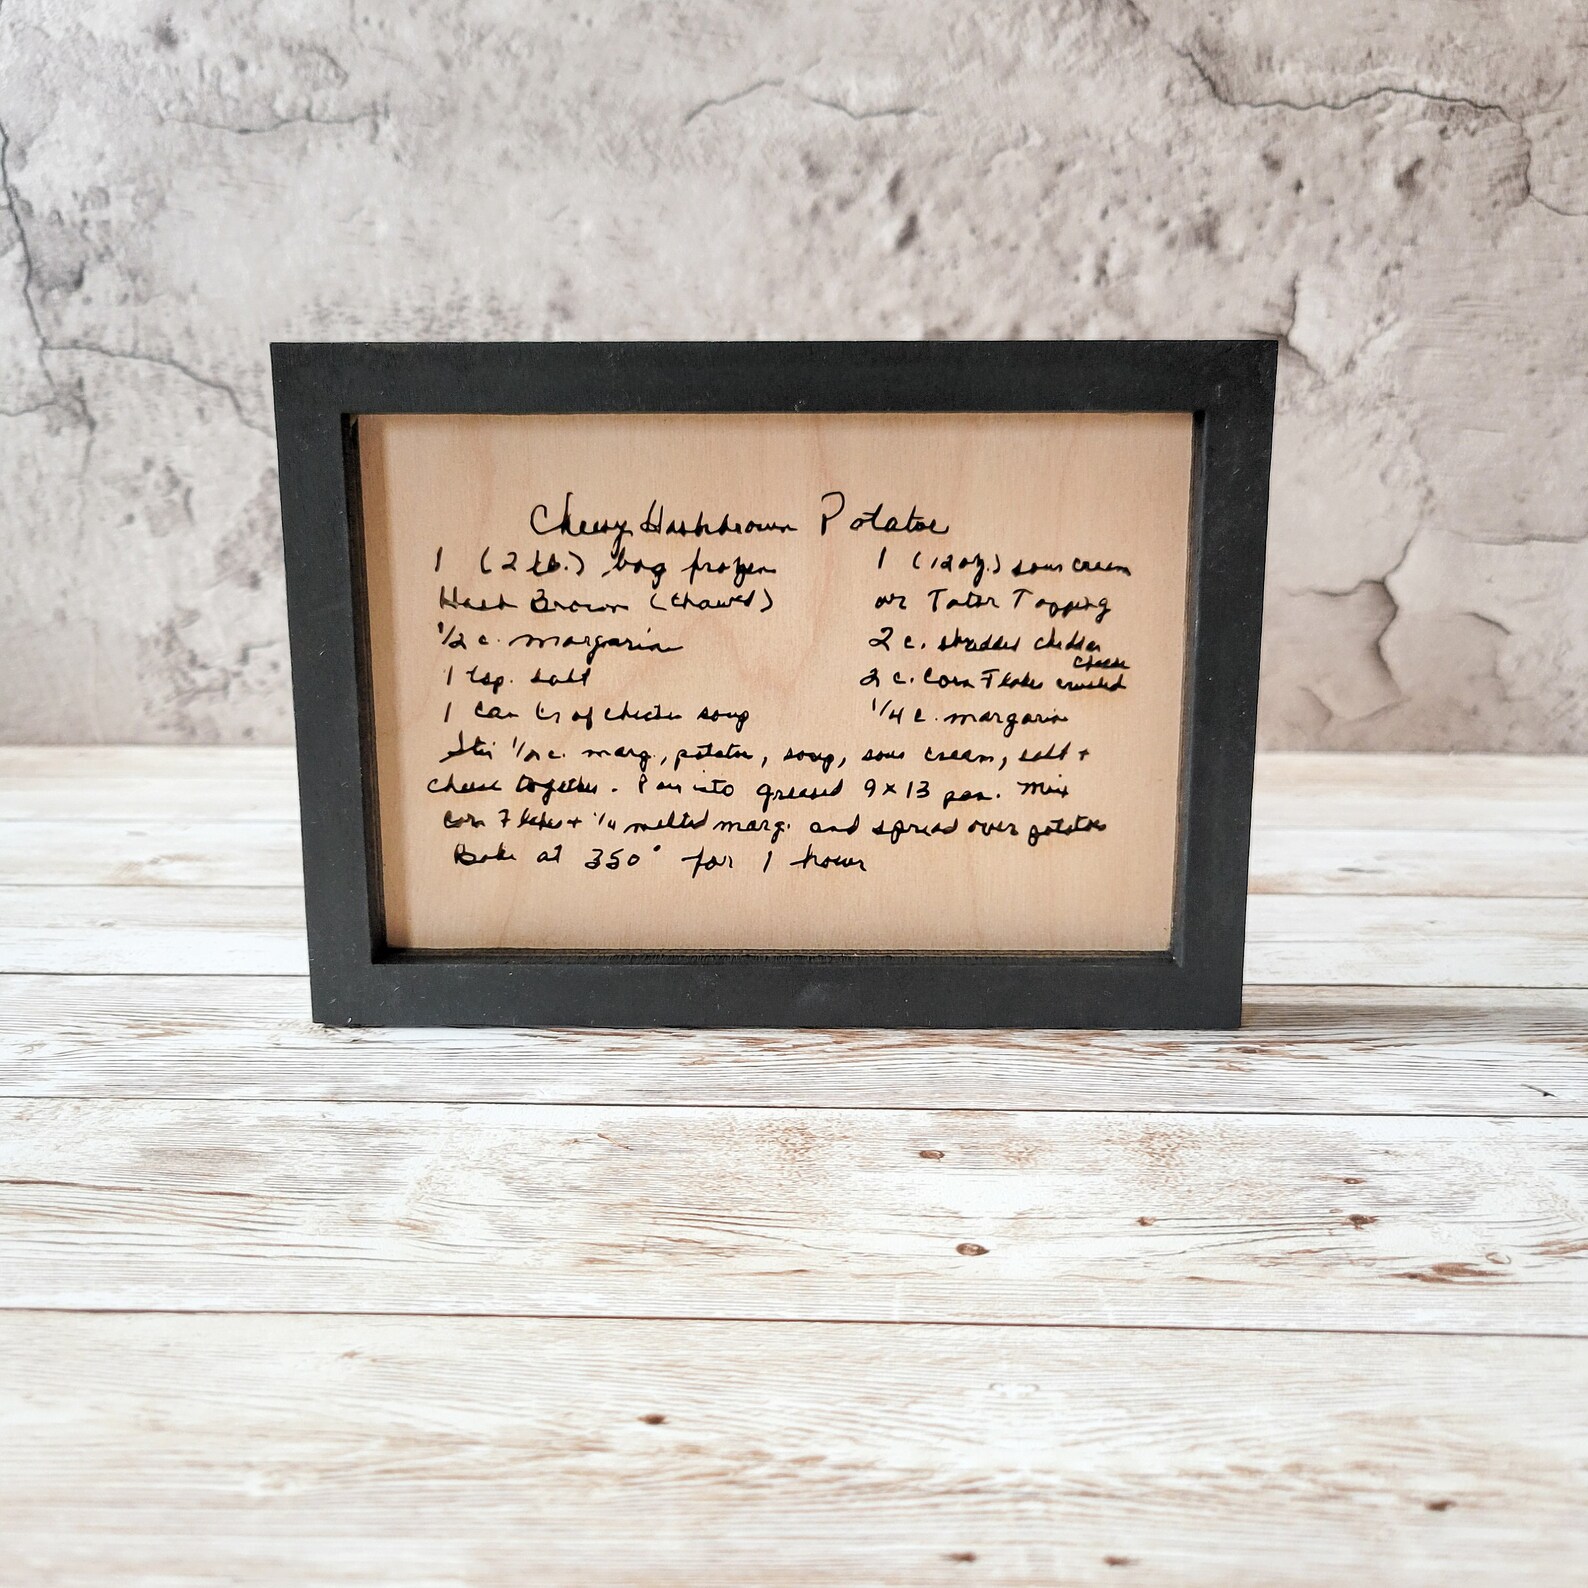 Cheesy Hashbrown Potatoe
1 (2 lb.) bag frozen
Hash Brown (thawed)
1/2 c. margarin
1 tsp. salt
1 can cr of chicken soup
1 (12 oz.) sour cream
or Tator Topping
2 c. shredded cheddar
cheese
2 c. Corn Flakes crushed
1/4 c. margarin
Stir 1/2 c. marg., potatoe, soup, sour cream, salt +
cheese together. Pour into greased 9x13 pan. Mix
Corn Flakes + 1/4 melted marg. and spread over potatoe
Bake at 350° for 1 hour